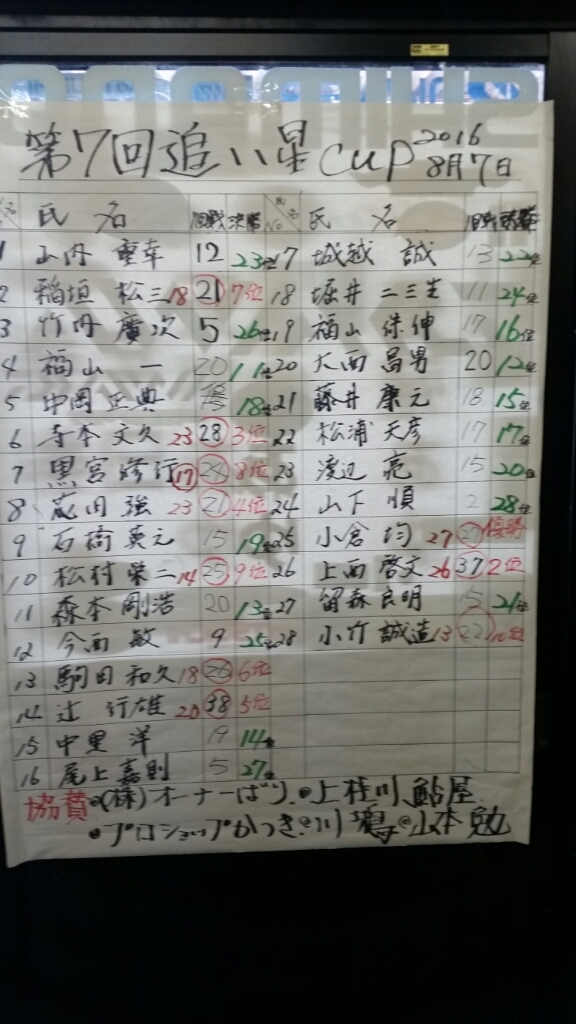 第7回追い星cup 2016 8月7日
氏名 予戦 決勝 No 氏名
1 山内 重幸 12 23位 17 城越 誠 13 22位
2 稲垣 松三 18 21 7位 18 堀井 二三生 11 24位
3 竹内 廣次 5 26位 19 福山 保伸 17 16位
4 福山 一 20 11位 20 大西 昌男 20 12位
5 中岡 正典 18位 21 藤井 康元 18 15位
6 寺本 文久 23 28 3位 22 松浦 天彦 17 17位
7 黒宮 修行 17 8位 23 渡辺 亮 15 20位
8 強 23 21 4位 24 山下 順 2 28位
9 石橋 英元 15 19位 25 小倉 均 27 優勝
10 松村 栄二 14 25 9位 26 上西 啓文 26 37 2位
11 森本 剛浩 20 13位 27 留森 良明 21位
12 今西 敏 9 25位 28 小竹 誠造 13 22 10位
13 駒田 和久 18 26 6位
14 辻 行雄 20 38 5位
15 中里 洋 19 14位
16 尾上 嘉則 5 27位
協賛 ●(株)オーナーばり ●上桂川 鮎屋
●プロショップかつき ●川 ●山本 勉